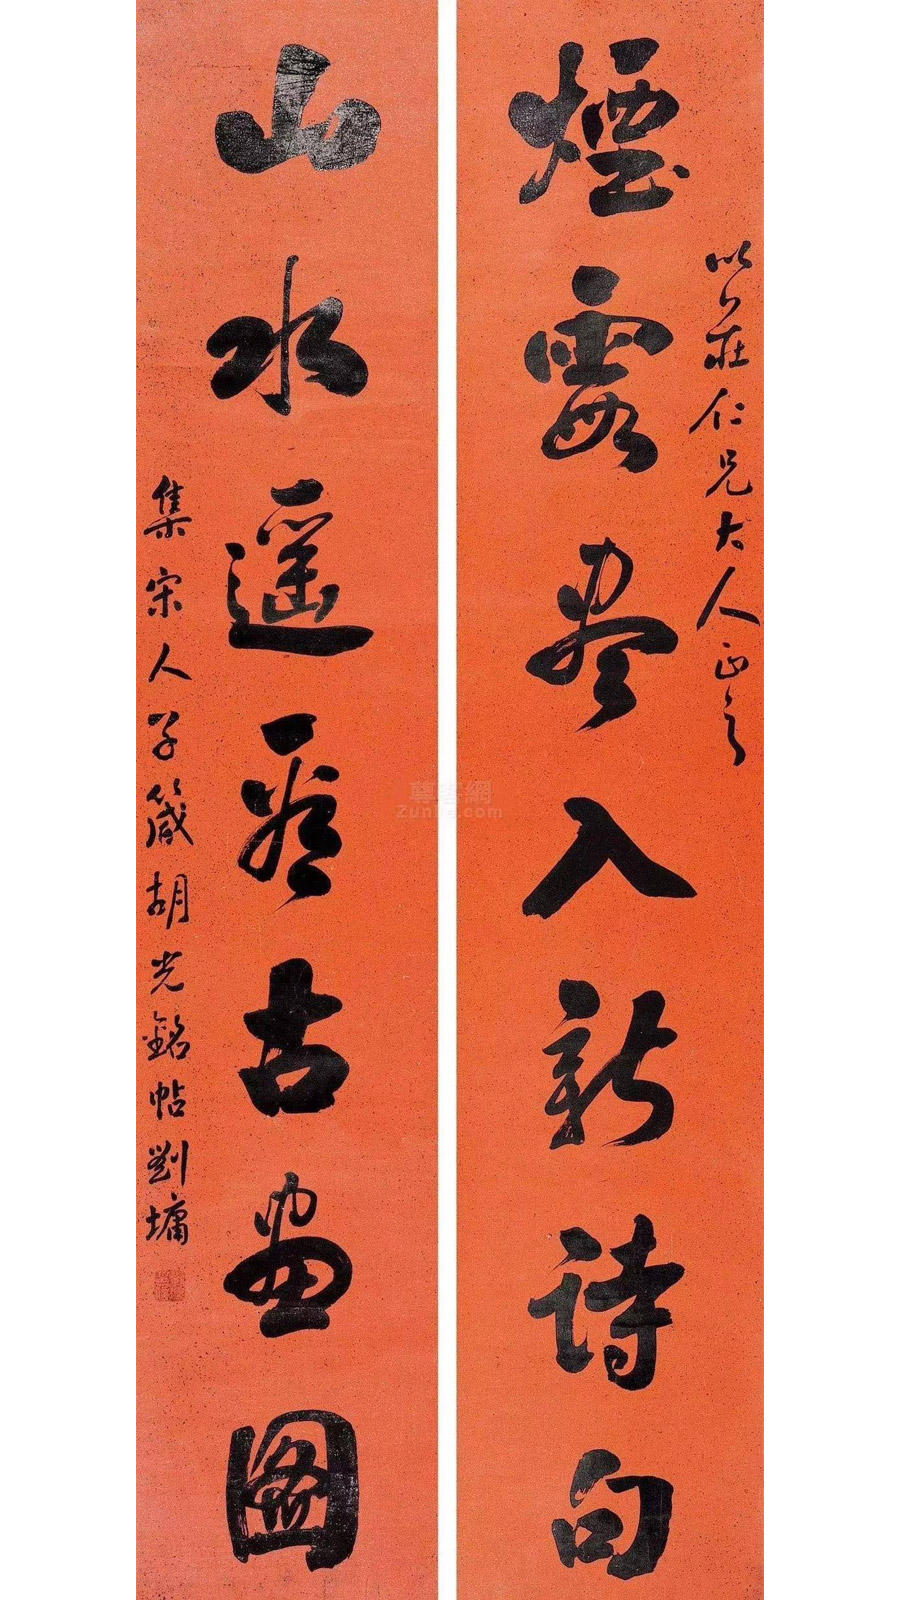 以公莊仁兄大人正之
煙霞盡入新詩句
山水遥看古畫圖
集宋人子箴胡光銘帖劉墉
尊客網